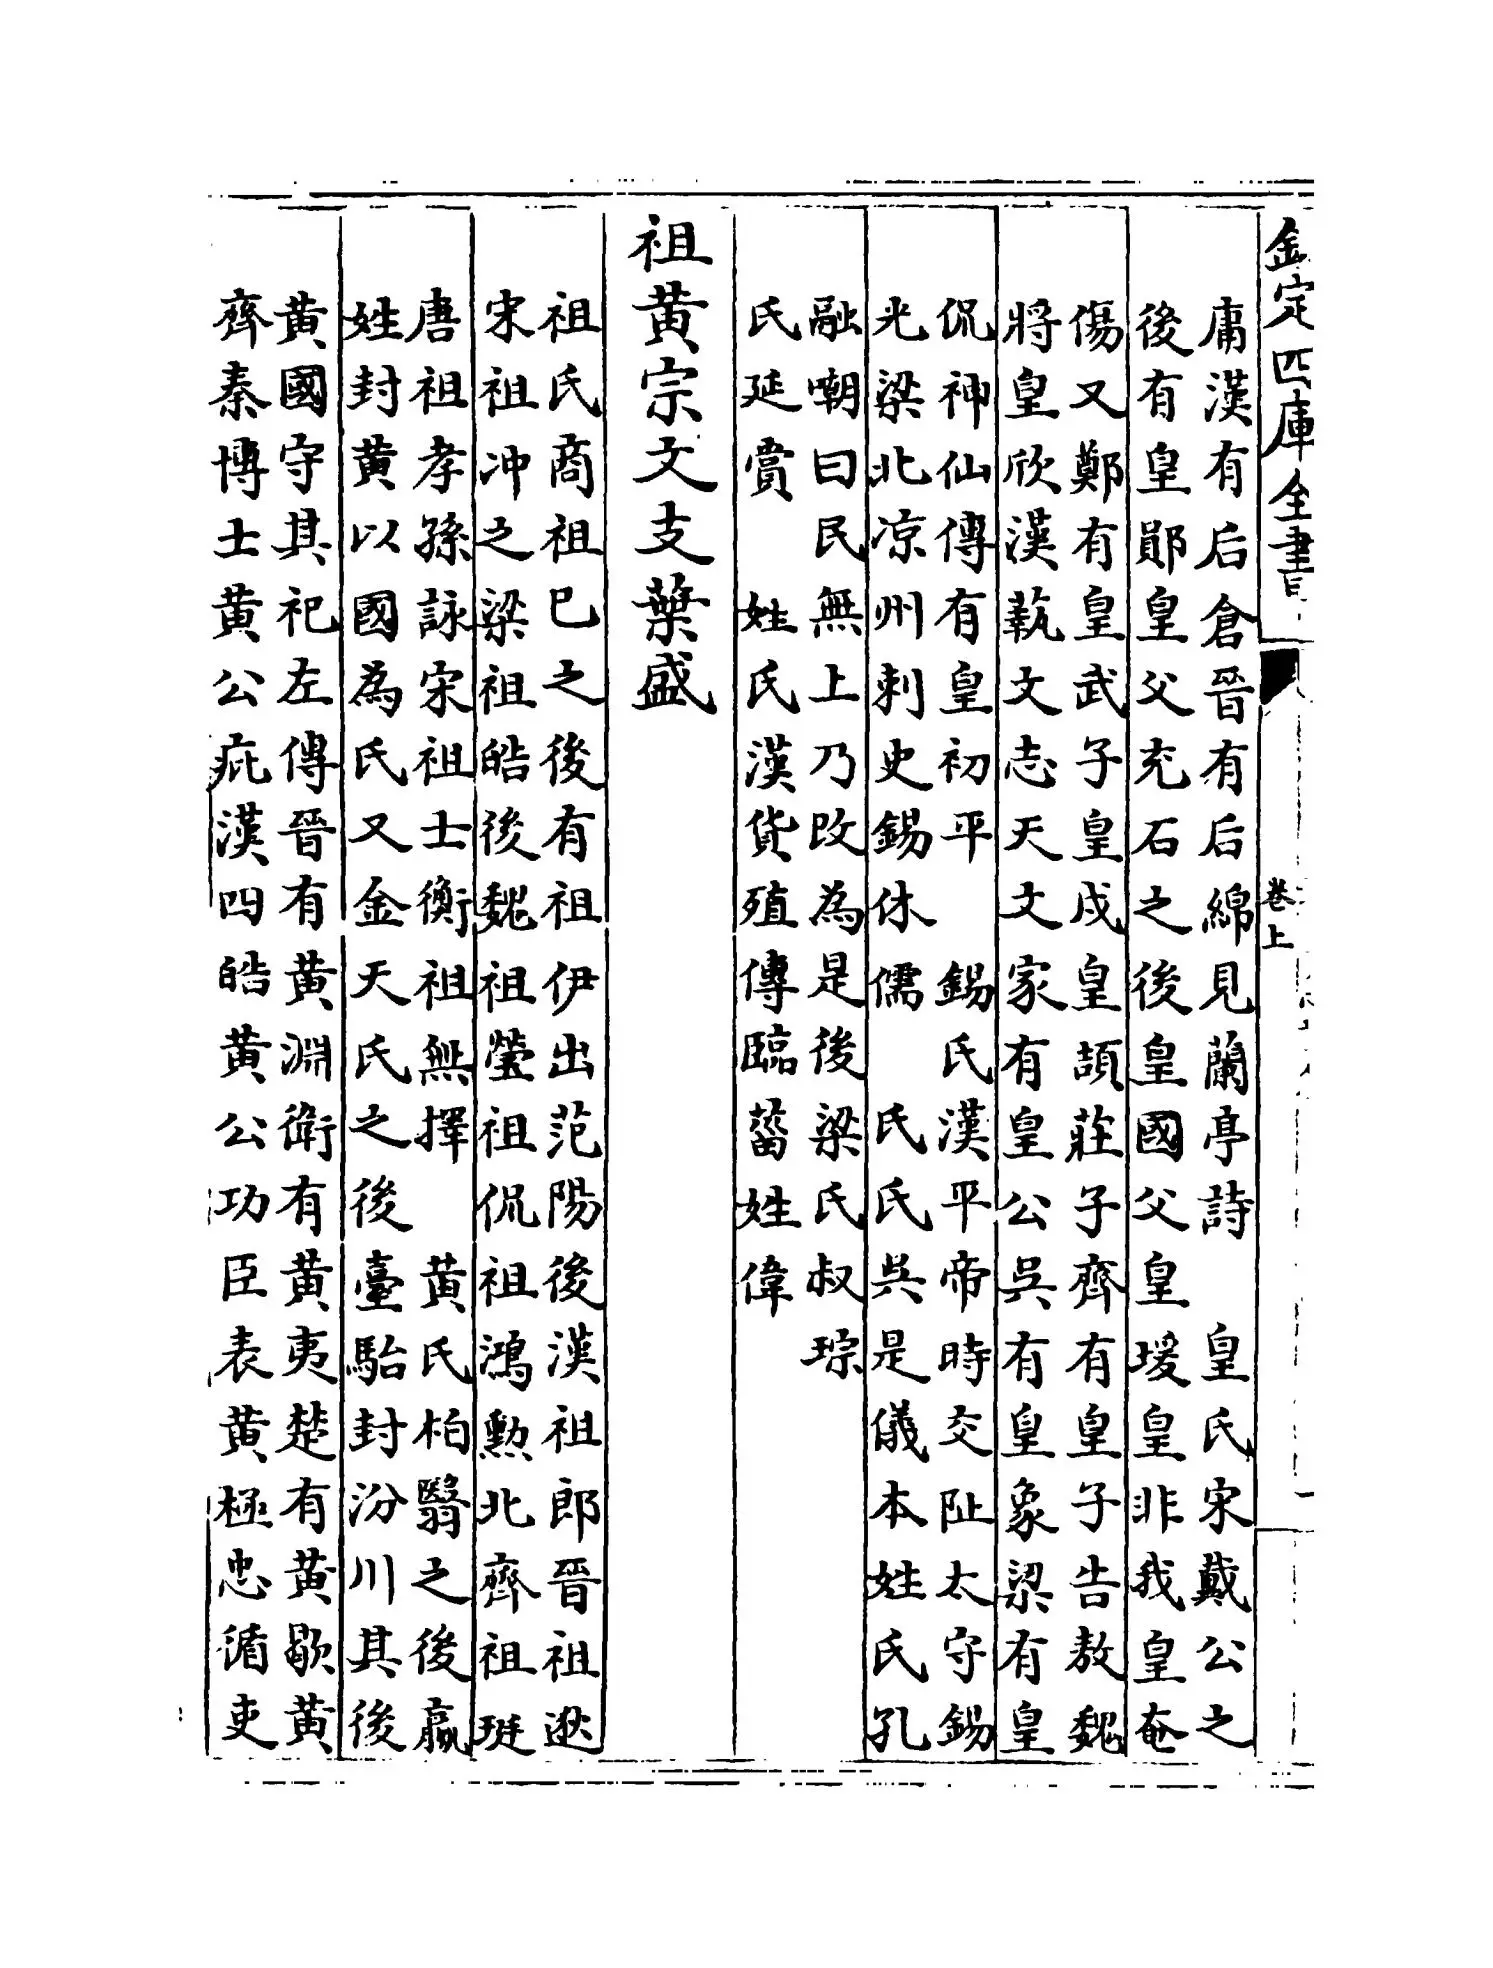 欽定四庫全書
卷上
庸漢有后倉晉有后綿見蘭亭詩　皇氏宋戴公之
後有皇鄖皇父充石之後皇國父皇瑗皇非我皇奄
傷又鄭有皇武子皇戌皇頡莊子齊有皇子告敖魏
將皇欣漢蓺文志天文家有皇公吳有皇象梁有皇
侃神仙傳有皇初平　錫氏漢平帝時交阯太守錫
光梁北凉州刺史錫休儒　氏氏吳是儀本姓氏孔
融嘲曰民無上乃改為是後梁氏叔琮
氏延賞　姓氏漢貨殖傳臨菑姓偉
祖黄宗文支葉盛
祖氏商祖巳之後有祖伊出范陽後漢祖郎晉祖逖
宋祖冲之梁祖皓後魏祖瑩祖侃祖鴻勲北齊祖珽
唐祖孝孫詠宋祖士衡祖無擇　黄氏柏翳之後嬴
姓封黄以國為氏又金天氏之後臺駘封汾川其後
黄國守其祀左傳晉有黄淵衛有黄夷楚有黄歇黄
齊秦博士黄公疵漢四皓黄公功臣表黄極忠循吏